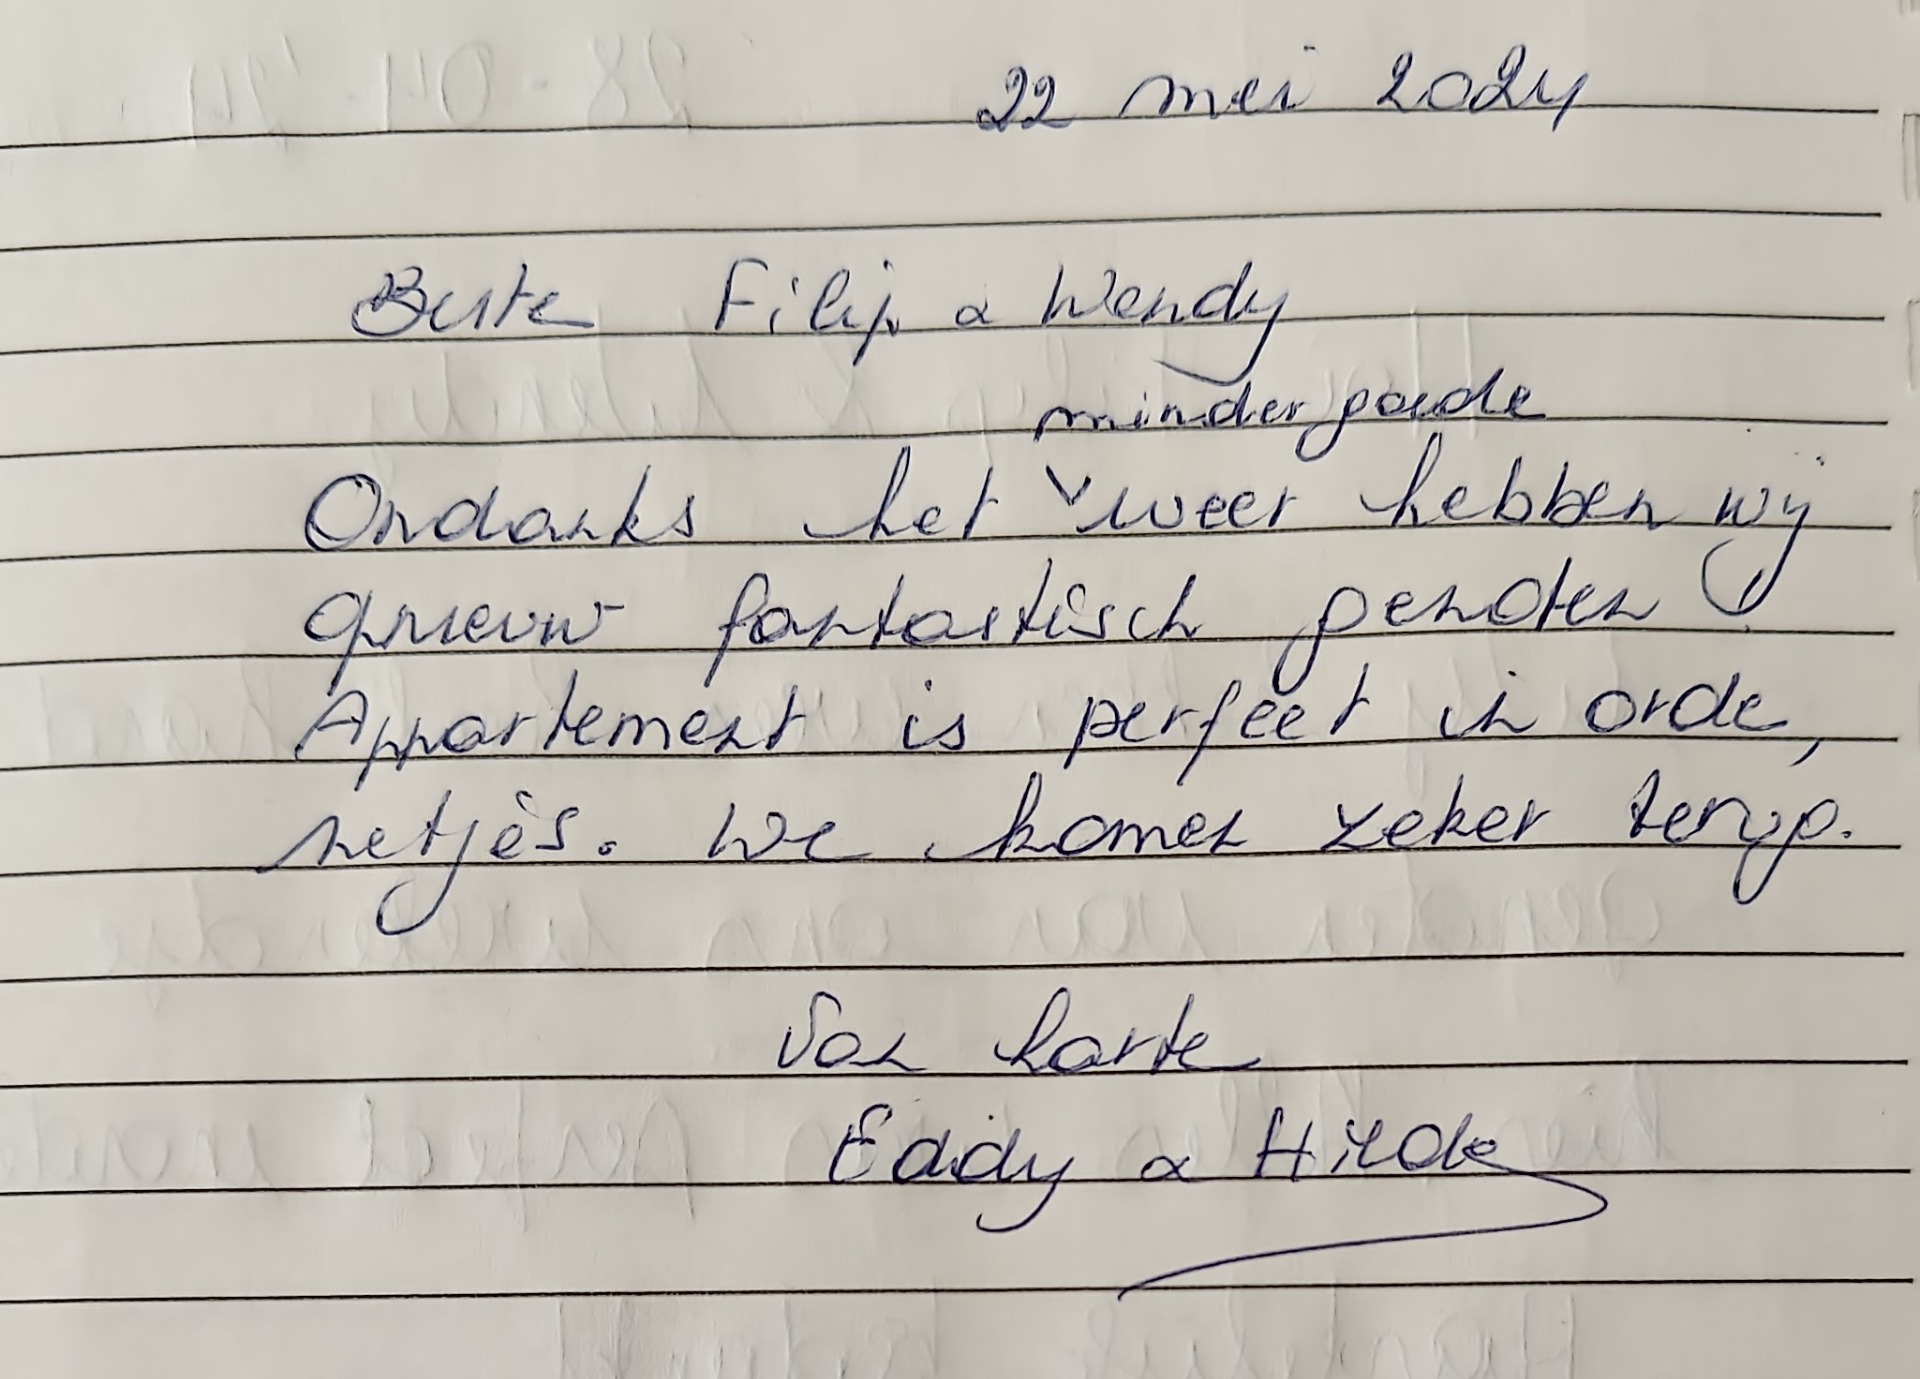 22 mei 2024
Beste Filip & Wendy
minder goede
Ondanks het weer hebben wij
opnieuw fantastisch genoten!
Appartement is perfect in orde,
netjes. We komen zeker terug.
Van harte
Eddy & Hilde